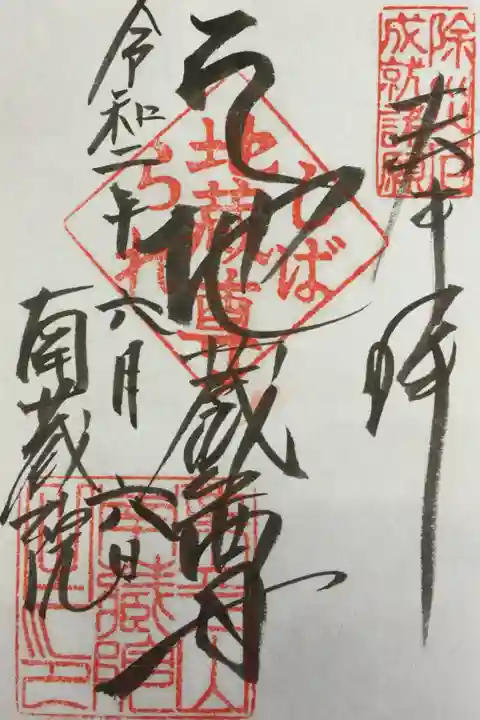 奉拝
除災厄
成就諸願
しば
地蔵尊
られ
地蔵尊
令和二年六月六日
南蔵院
南蔵院